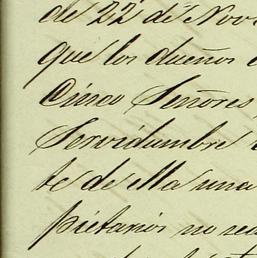 de 22 de Nov
que los dueños
Cinco Señores
Servidumbre
te de ella una
pietarios no sea